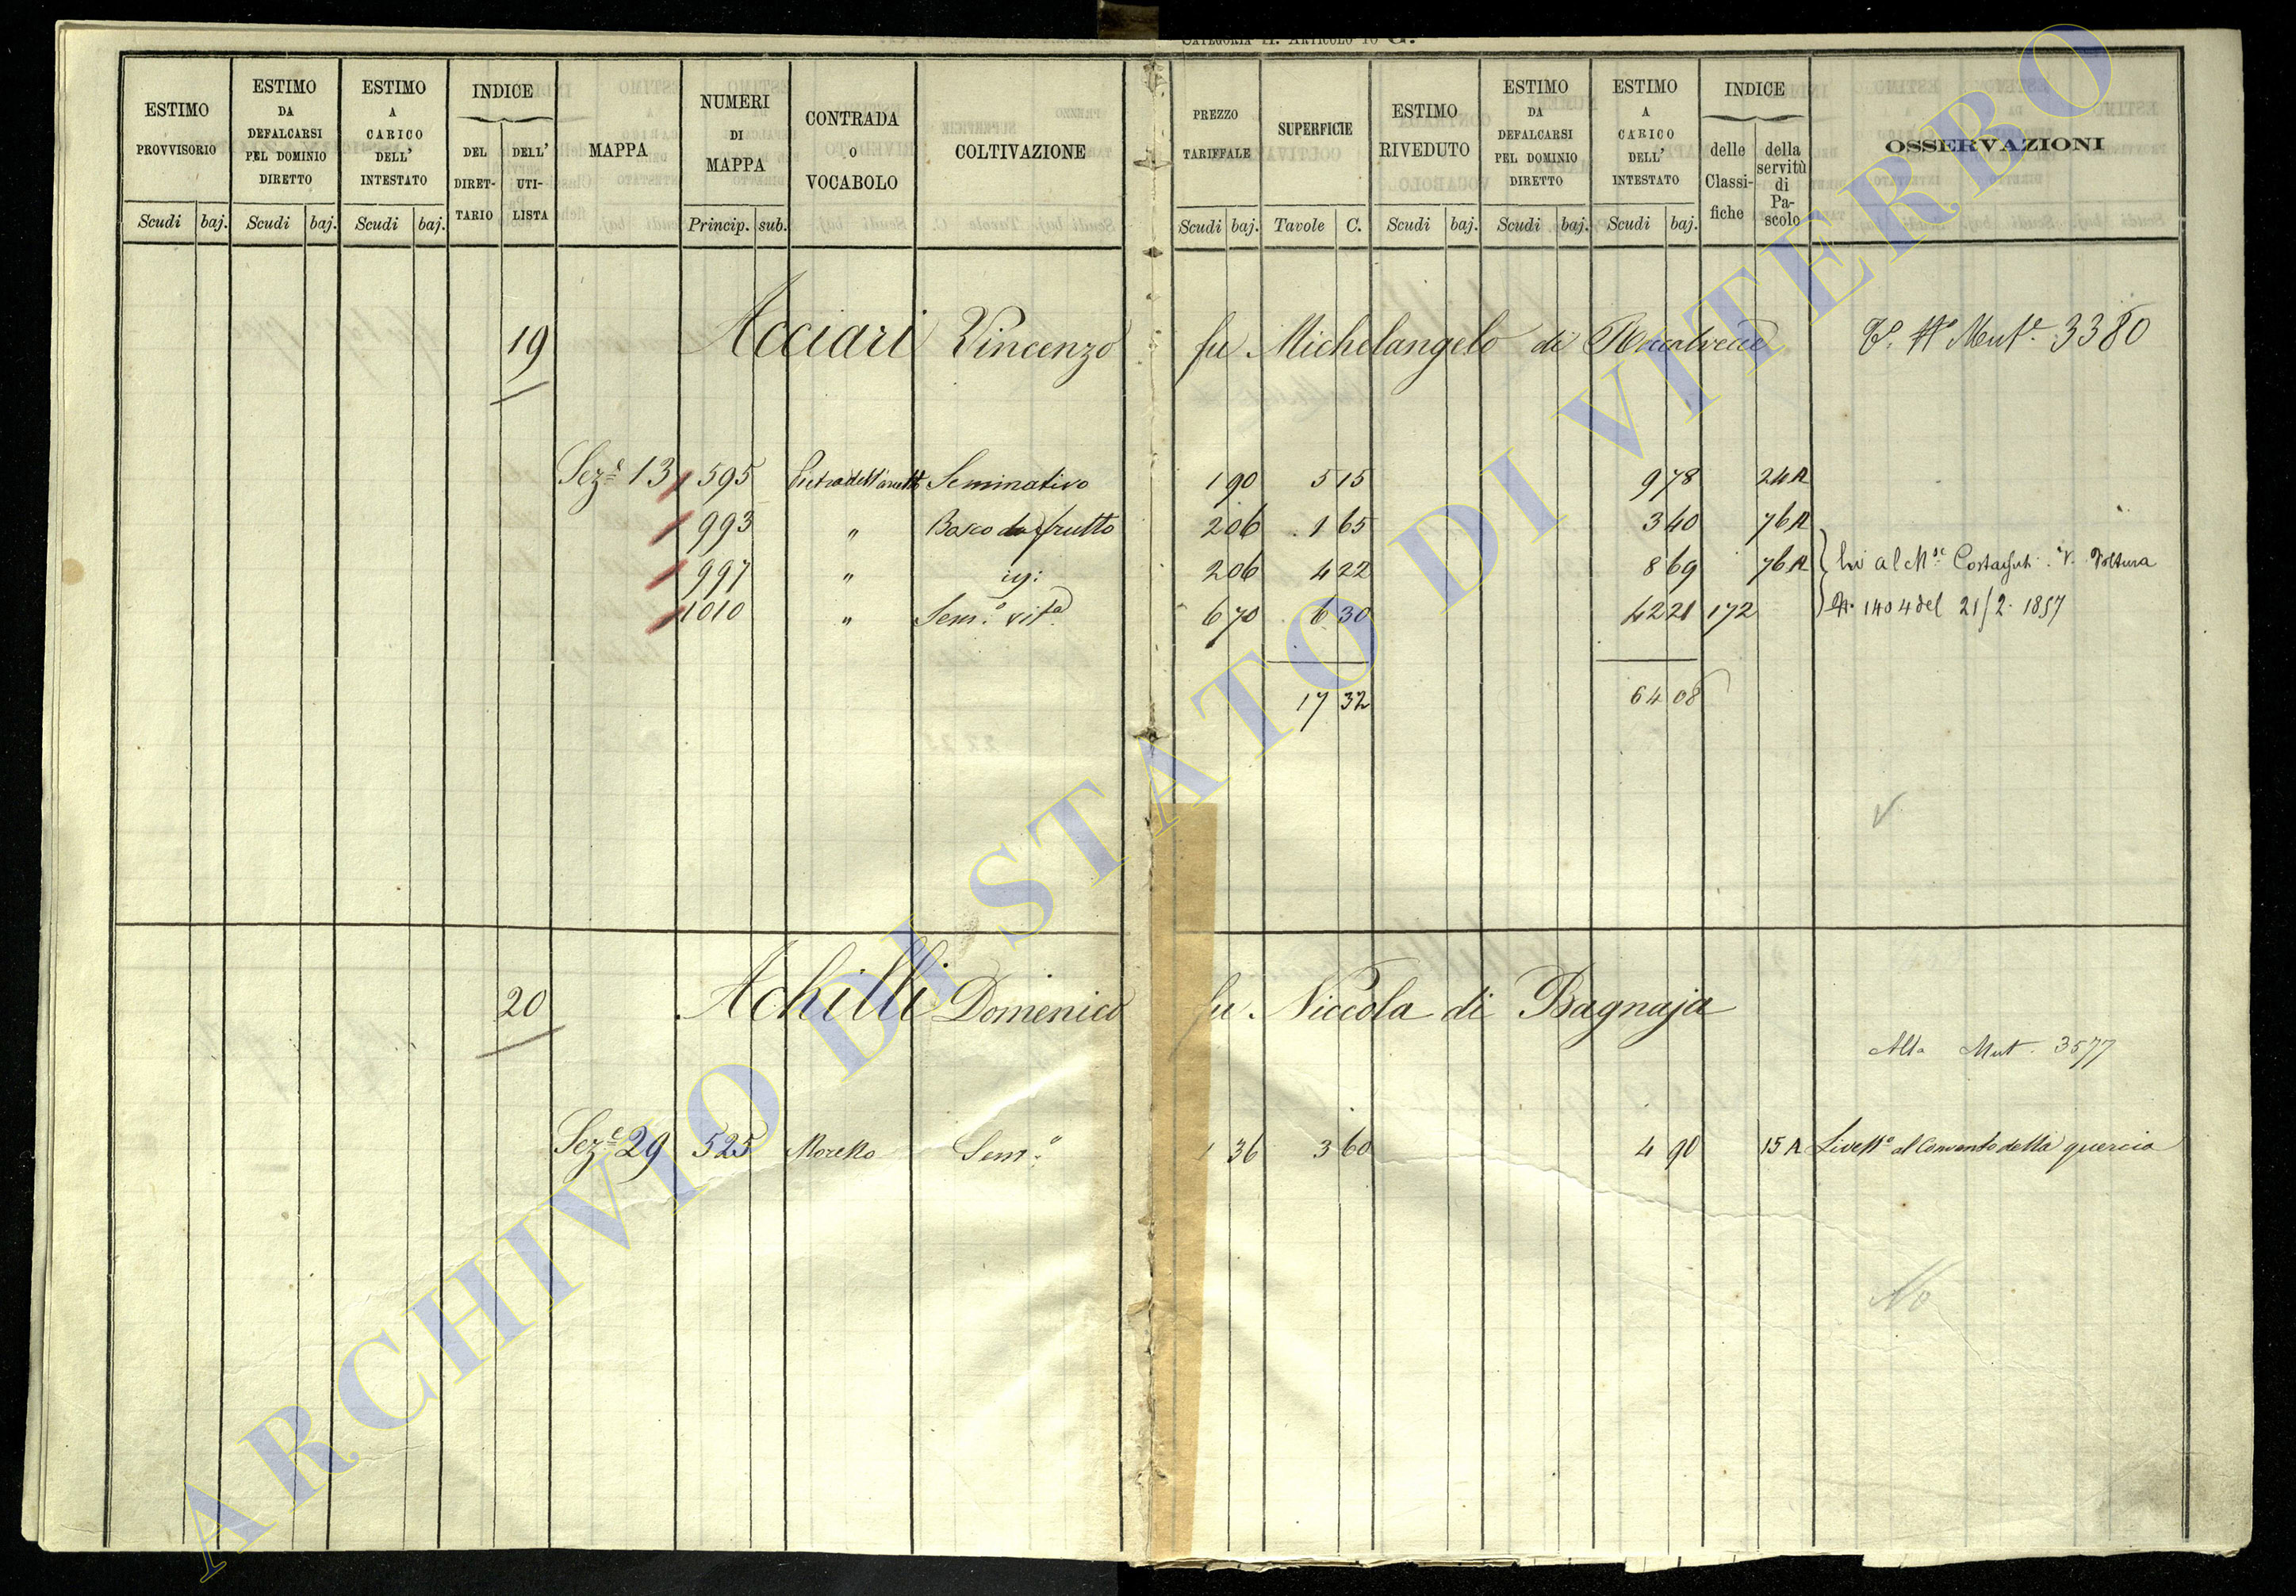 CATEGORIA II. ARTICOLO 10 G.
ESTIMO PROVVISORIO
Scudi baj.
ESTIMO DA DEFALCARSI PEL DOMINIO DIRETTO
Scudi baj.
ESTIMO A CARICO DELL' INTESTATO
Scudi baj.
INDICE
DEL DIRET-TARIO
DELL' UTI-LISTA
MAPPA
NUMERI DI MAPPA
Princip. sub.
CONTRADA O VOCABOLO
COLTIVAZIONE
PREZZO TARIFFALE
Scudi baj.
SUPERFICIE
Tavole C.
ESTIMO RIVEDUTO
Scudi baj.
ESTIMO DA DEFALCARSI PEL DOMINIO DIRETTO
Scudi baj.
ESTIMO A CARICO DELL' INTESTATO
Scudi baj.
INDICE
delle Classi-fiche
della servitù di Pa-scolo
OSSERVAZIONI
19 Acciari Vincenzo fu Michelangelo di Roccalvecce Mut.e 3380
Sez.e 13 595 Seminativo 1 90 5 15 9 78 24A
993 " Bosco da frutto 2 06 1 65 3 40 76A
997 " 2 06 4 22 8 69 76A al M.se Costaguti V. Voltura
1010 " Sem.o vit.o 6 70 6 30 42 21 172 1404 del 21/2. 1857
17 32 64 08
V
20 Achilli Domenico fu Niccola di Bagnaja
Alla Mut. 3577
Sez.e 29 525 Moretto Sem.o 1 36 3 60 4 90 15A Livell.o al Convento della quercia
No
ARCHIVIO DI STATO DI VITERBO